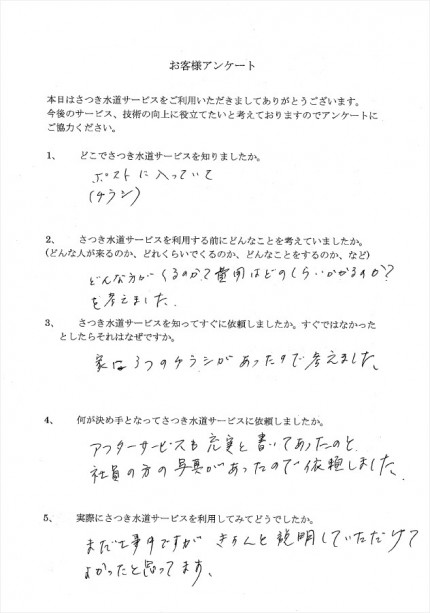 お客様アンケート
本日はさつき水道サービスをご利用いただきましてありがとうございます。
今後のサービス、技術の向上に役立てたいと考えておりますのでアンケートに
ご協力ください。
1、 どこでさつき水道サービスを知りましたか。
ポストに入っていて
(チラシ)
2、 さつき水道サービスを利用する前にどんなことを考えていましたか。
(どんな人が来るのか、どれくらいでくるのか、どんなことをするのか、など)
どんな方がくるのか?費用はどのくらいかかるのか?
を考えました.
3、 さつき水道サービスを知ってすぐに依頼しましたか。すぐではなかった
としたらそれはなぜですか。
家は3つのチラシがあったので考えました。
4、 何が決め手となってさつき水道サービスに依頼しましたか。
アフターサービスも充実と書いてあったのと
社員の方の写真があったので依頼しました.
5、 実際にさつき水道サービスを利用してみてどうでしたか。
まだ工事前ですが きちんと説明していただけて
よかったと思ってます、